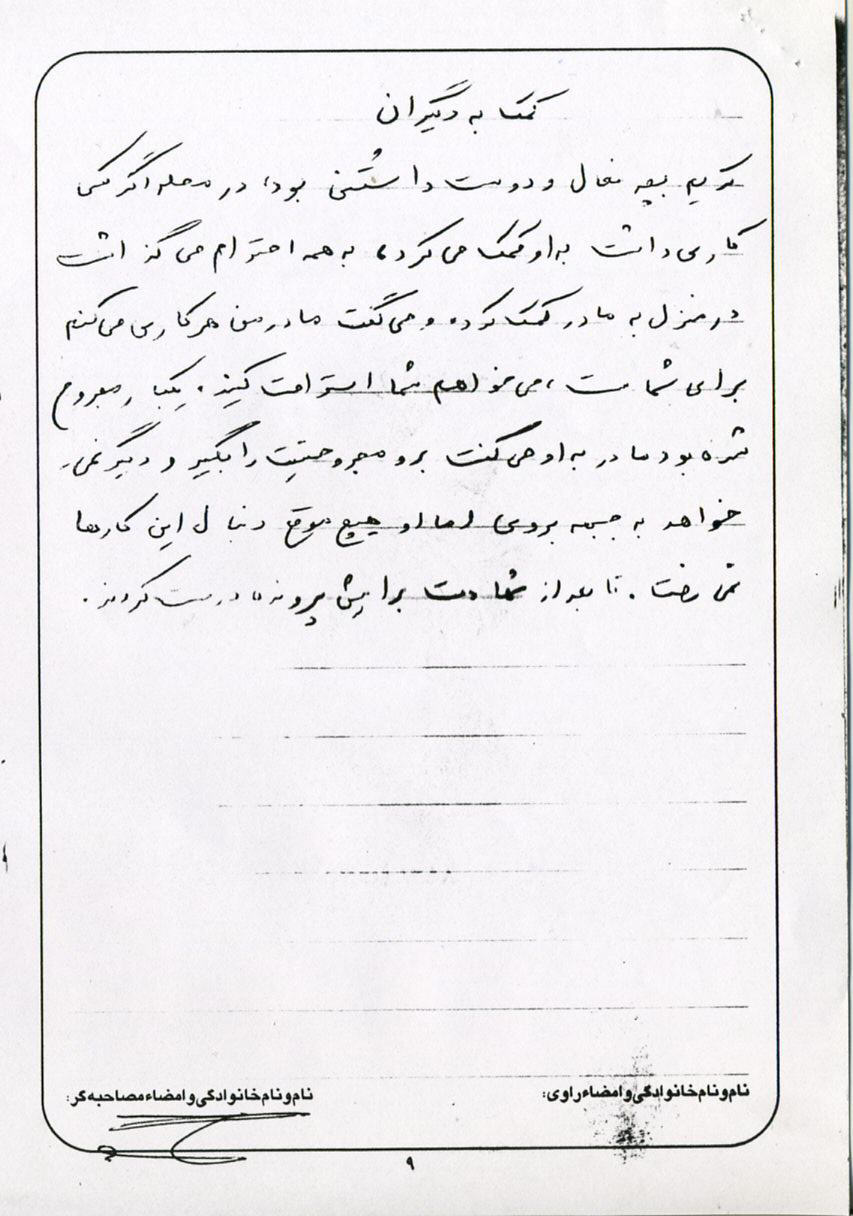 کمک به دیگران
کریم بچه فعال و دوست داشتنی بود، در محله اگر کسی
کاری داشت به او کمک می کرد، به همه احترام می گذاشت
در منزل به مادر کمک کرده و می گفت مادر من هر کاری می کنم
برای شماست، می خواهم شما استراحت کنید. یکبار مجروح
شده بود مادر به او می گفت برو مجروحیتت را بگیر و دیگر نمی
خواهد به جبهه بروی اما او هیچ موقع دنبال این کارها
نمی رفت. تا بعد از شهادت برایش پرونده درست کردند.
نام و نام خانوادگی و امضاء راوی:
نام و نام خانوادگی و امضاء مصاحبه گر:
۹